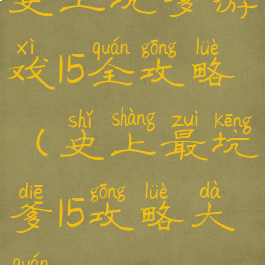 史上坑爹游
xì quán gōng lüè
戏15全攻略
shǐ shàng zuì kēng
(史上最坑
diē gōng lüè dà
爹15攻略大
quán